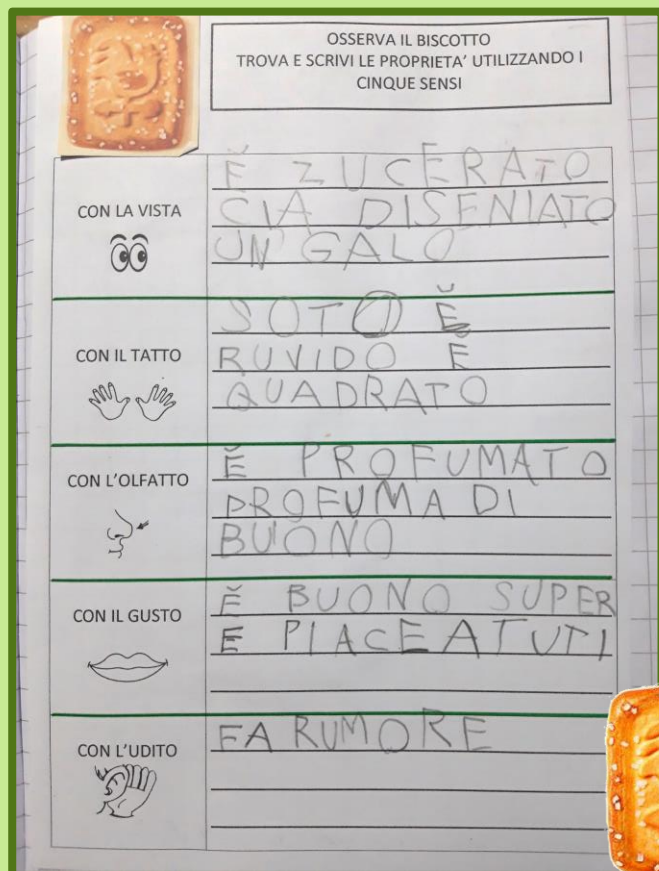 OSSERVA IL BISCOTTO
TROVA E SCRIVI LE PROPRIETA' UTILIZZANDO I
CINQUE SENSI
CON LA VISTA
È ZUCERATO
CIA DISENIATO
UN GALO
CON IL TATTO
SOTO È
RUVIDO E
QUADRATO
CON L'OLFATTO
È PROFUMATO
PROFUMA DI
BUONO
CON IL GUSTO
È BUONO SUPER
E PIACEATUTI
CON L'UDITO
FA RUMORE